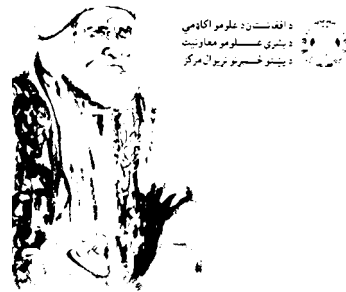 د افغانستان د علومو اکاډمي
د بشري علومو معاونیت
د پښتو څېړنو نړیوال مرکز